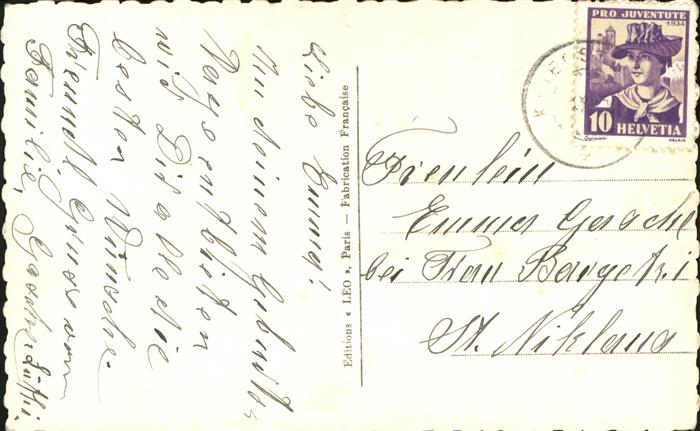 Liebe Emma!
Zu deinem Geburts-
tage entbieten
wir Dir alle die
besten Wünsche.
Freundl. Grüsse von
Familie
Editions « LEO », Paris — Fabrication Française
PRO JUVENTUTE
1934
10 HELVETIA
WALLIS
Fräulein
Emma
bei Frau
St. Niklaus